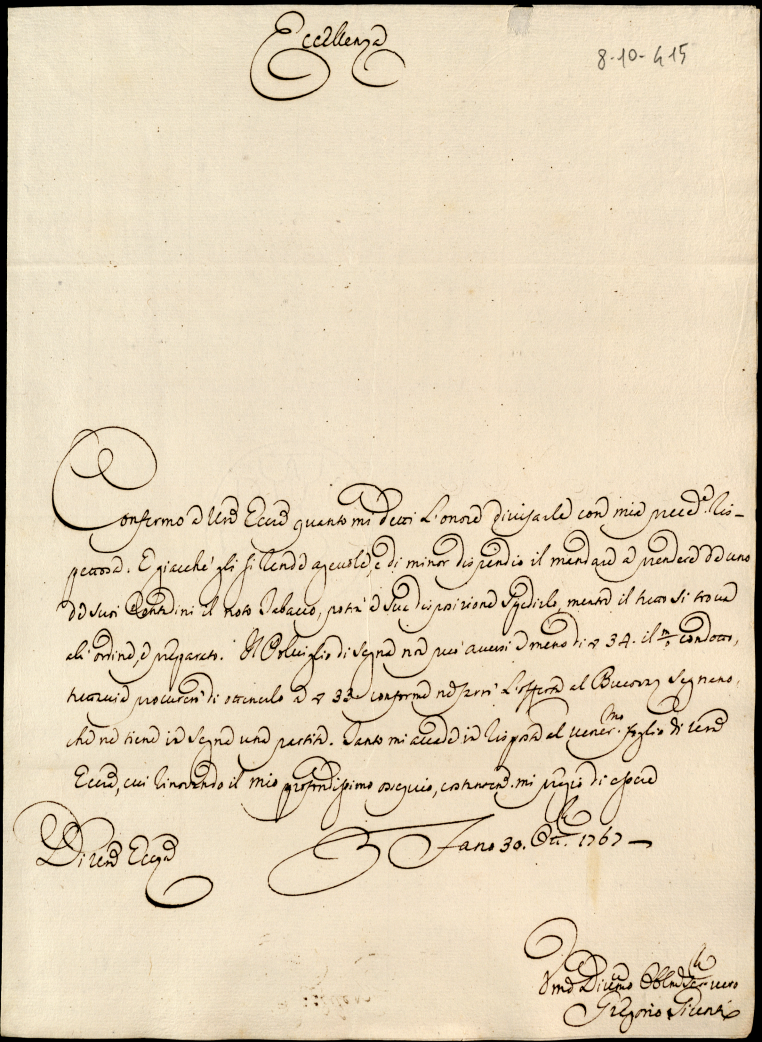 Eccellenza
8-10-415
Confermo a Vrã Eccza quanto mi detti l'onore divisarle con mia preced.e ris-
pettosa. E giacché gli si rende agevole, e di minor dispendio il mandare a prendere da uno
de suoi Contadini il noto Tabacco, potrà a sua disposizione spedirlo, mentre il tutto si trova
all'ordine, e preparato. Il Polviglio di Segna non può aversi a meno di 34. il condotto,
tuttavia procurerò di ottenerlo a 33 conforme ne farò l'offerta al Segnano,
che ne tiene in Segna una partita. Tanto mi accade in risposta al vener.mo foglio di Vrã
Eccza, cui rinovando il mio profondissimo ossequio, costantem. mi pregio di essere
Di Vrã Eccza
Fano 30. Ott. 1767
Umo Divmo Obblmo Servitore vero
Gregorio